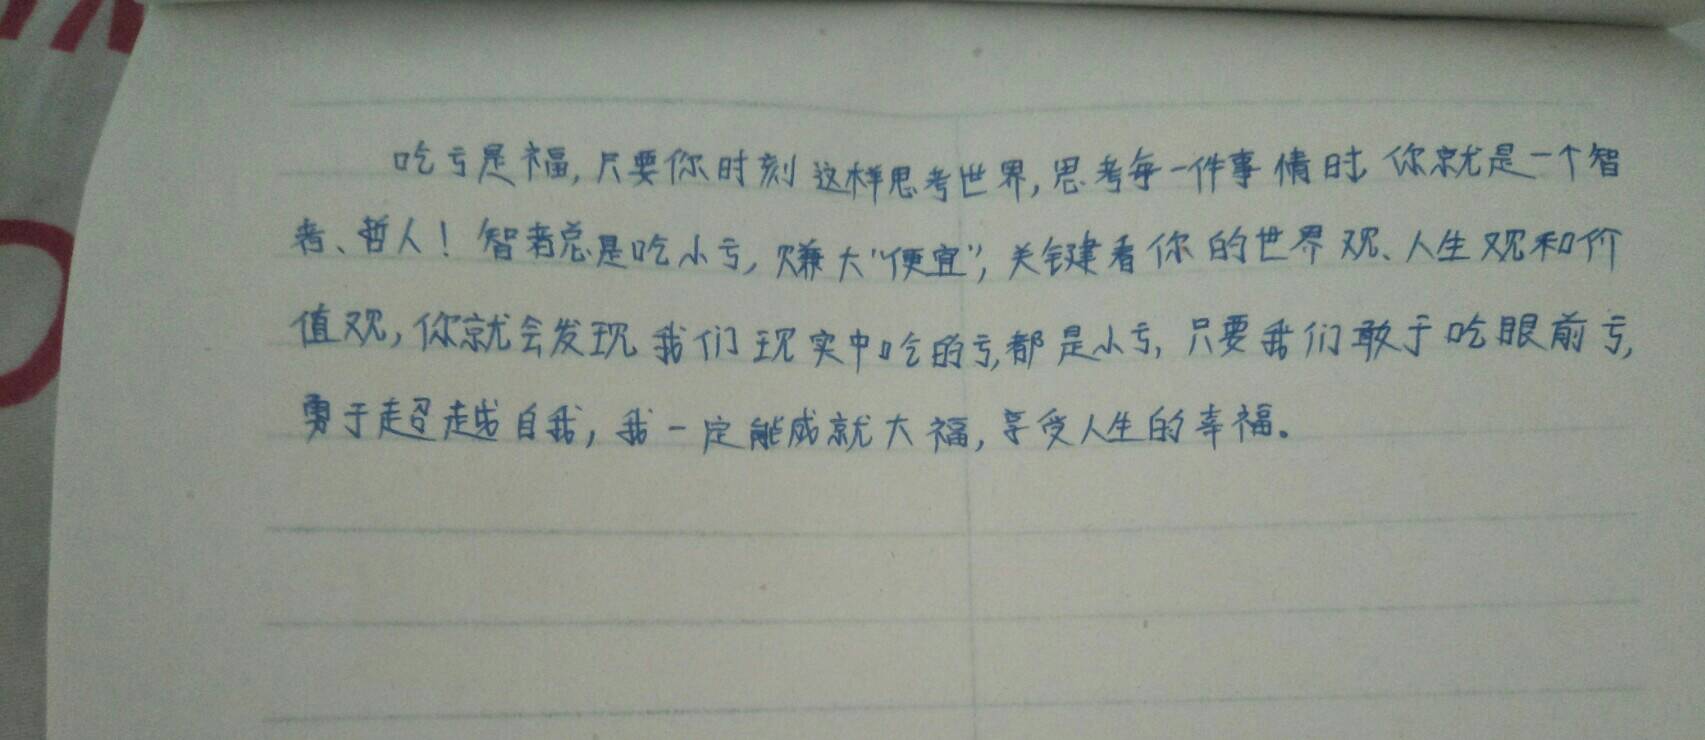 吃亏是福,只要你时刻这样思考世界,思考每一件事情时,你就是一个智
者、哲人！智者总是吃小亏,赚大“便宜”,关键看你的世界观、人生观和价
值观,你就会发现我们现实中吃的亏,都是小亏,只要我们敢于吃眼前亏,
勇于超越自我,我一定能成就大福,享受人生的幸福。